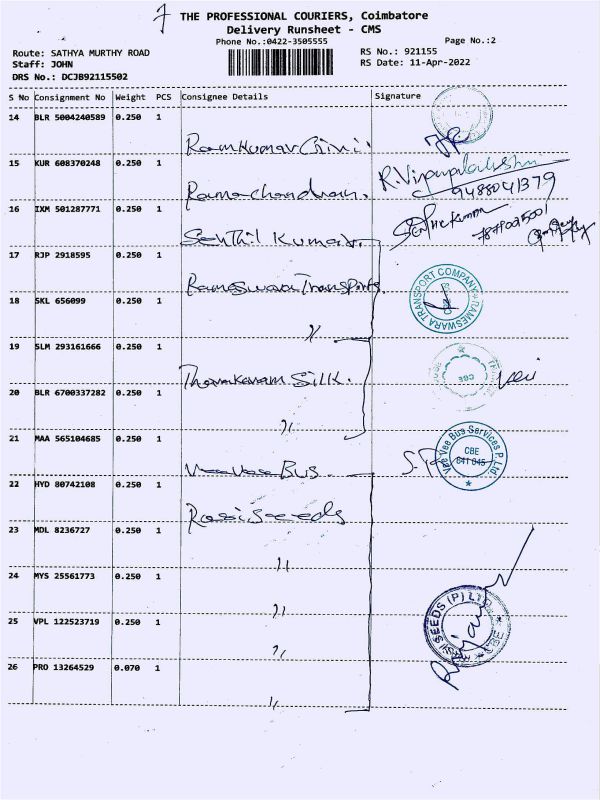 7
THE PROFESSIONAL COURIERS, Coimbatore
Delivery Runsheet - CMS
Phone No.:0422-3505555
Page No.:2
Route: SATHYA MURTHY ROAD
RS No.: 921155
Staff: JOHN
RS Date: 11-Apr-2022
DRS No.: DCJB92115502
S No Consignment No Weight PCS Consignee Details Signature
14 BLR 5004240589 0.250 1
Ramkumar
15 KUR 608370248 0.250 1
Ramachandran.
9488041379
16 IXM 501287771 0.250 1
Senthil Kumar.
17 RJP 2918595 0.250 1
Rameswara Transports
18 SKL 656099 0.250 1
TRANSPORT COMPANY RAMESWARA
〃
19 SLM 293161666 0.250 1
Silk.
CBE
20 BLR 6700337282 0.250 1
〃
21 MAA 565104685 0.250 1
Vee Vee Bus
Vee Vee Bus Services P. Ltd
CBE
641 045
22 HYD 80742108 0.250 1
Rasi Seeds
23 MDL 8236727 0.250 1
〃
24 MYS 25561773 0.250 1
〃
25 VPL 122523719 0.250 1
〃
SEEDS (P) LTD CBE
26 PRO 13264529 0.070 1
〃